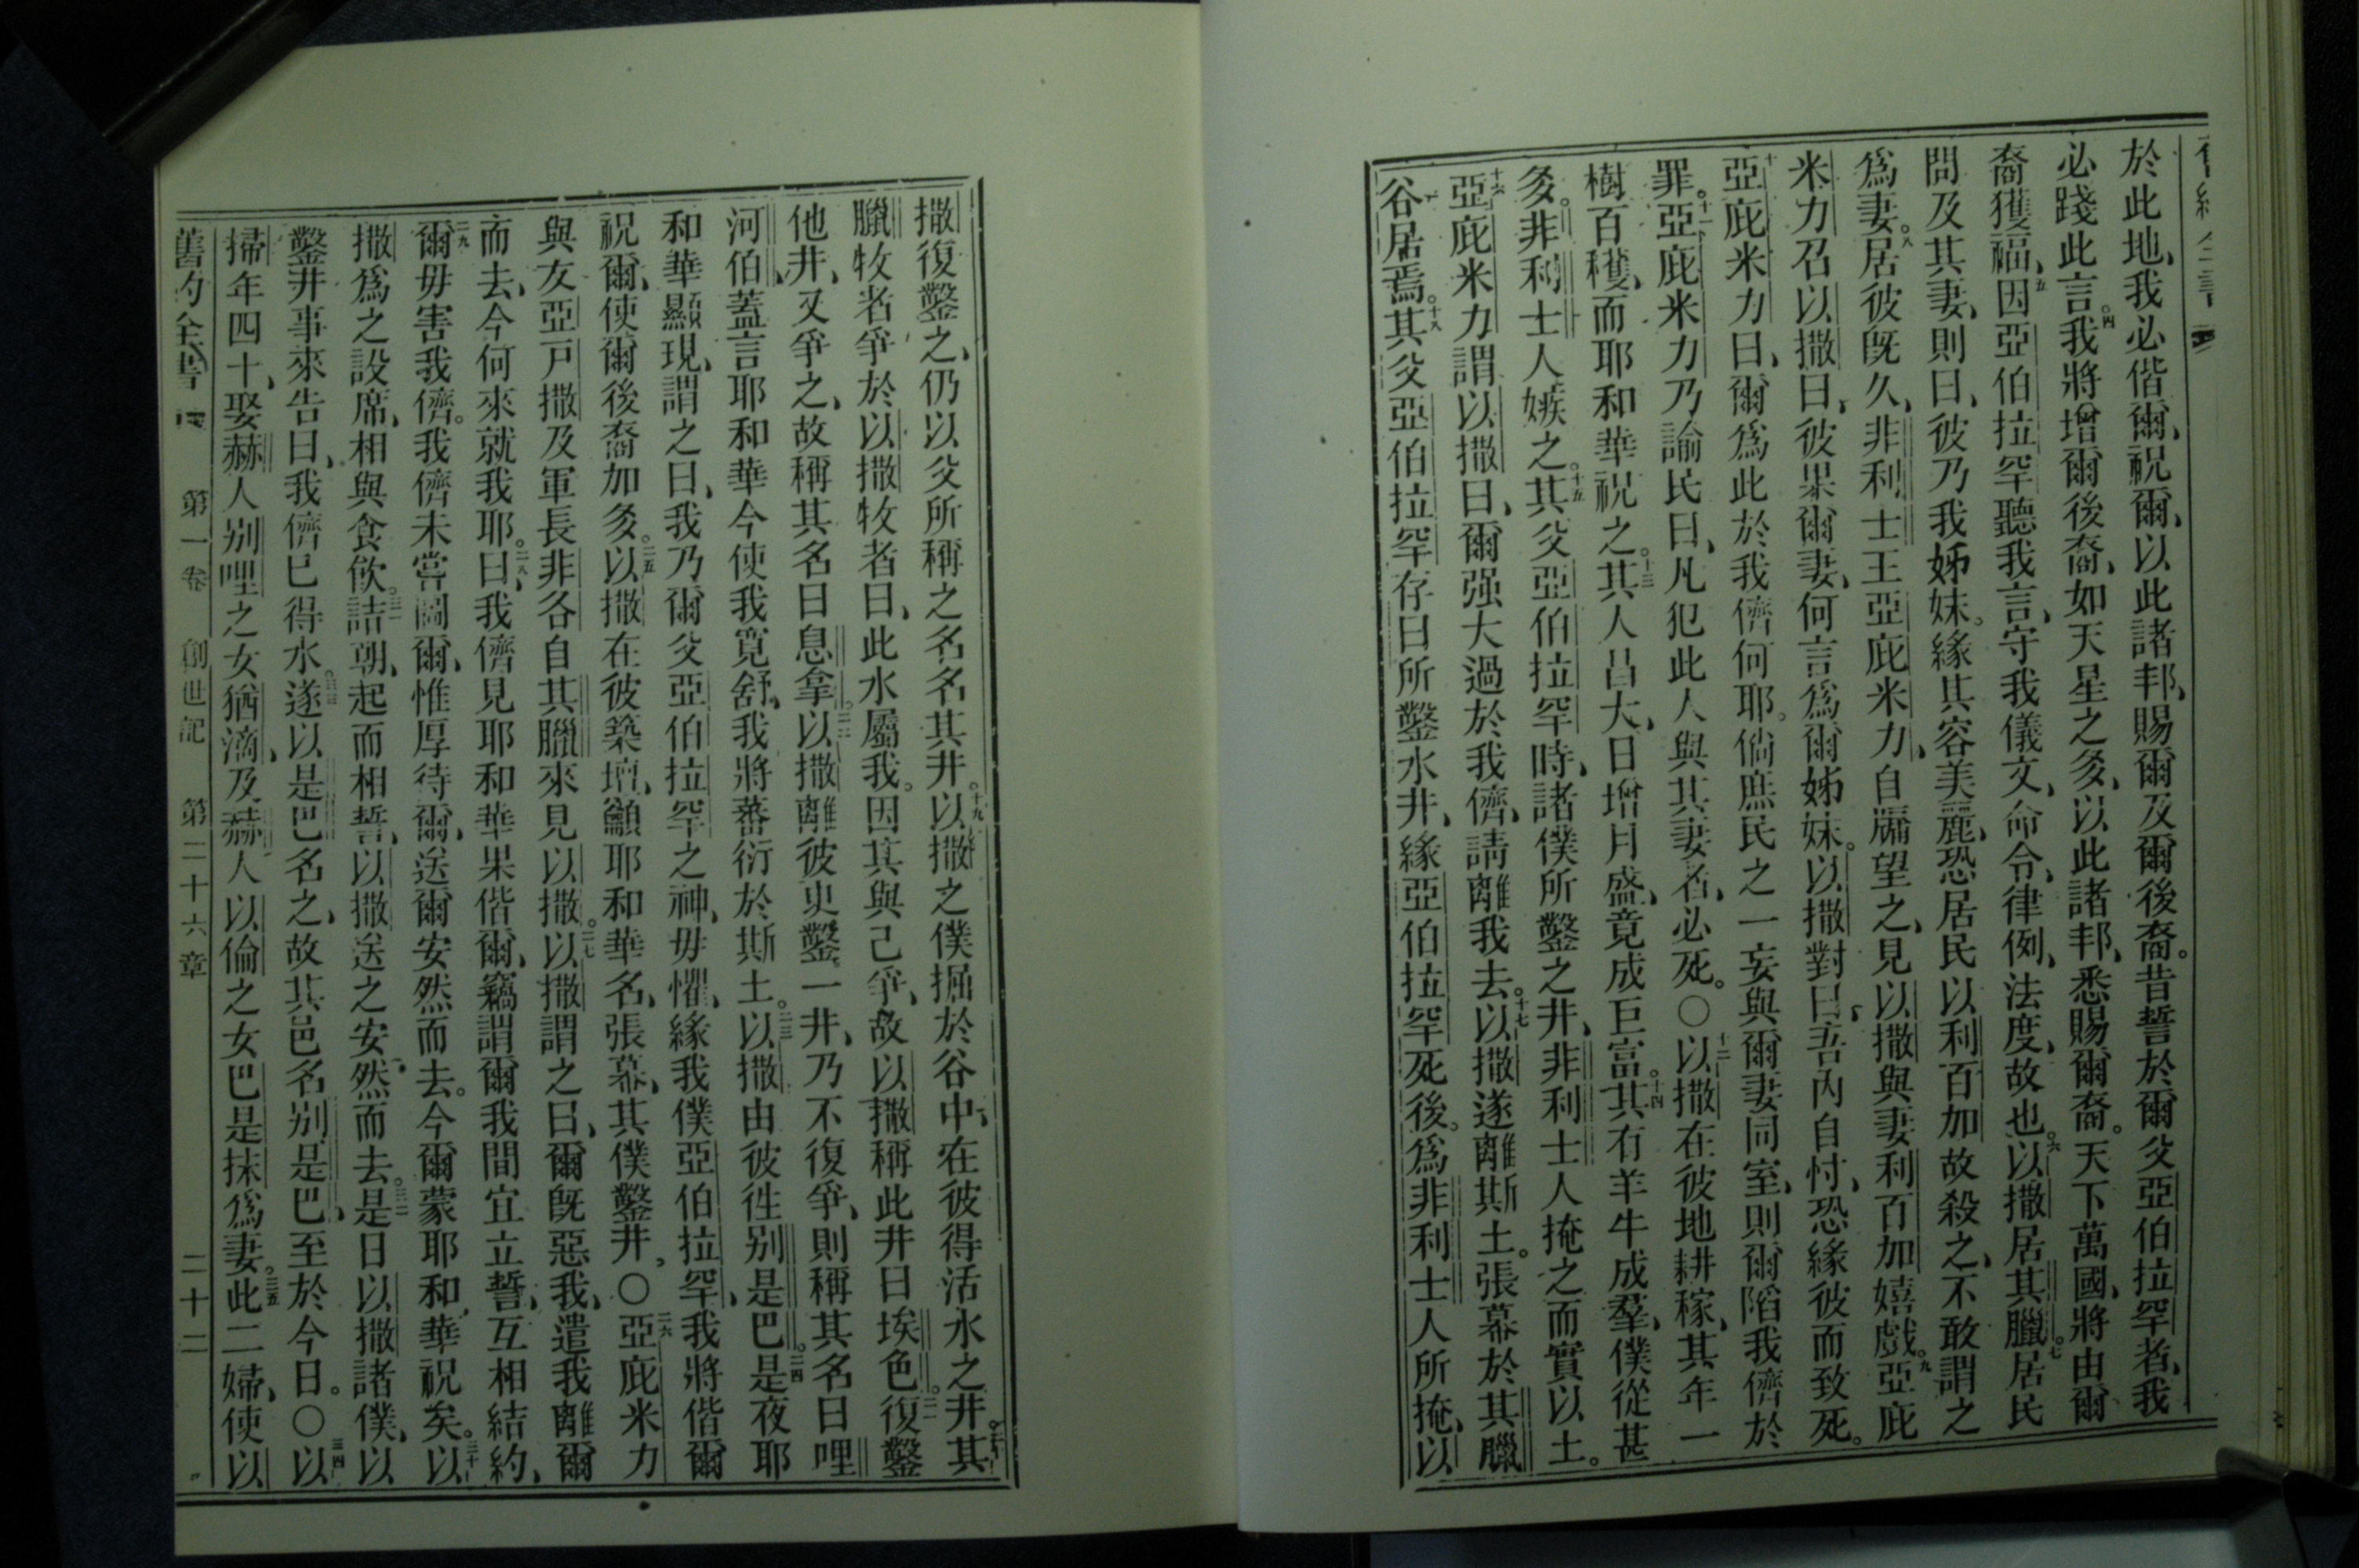 於此地、我必偕爾、祝爾、以此諸邦、賜爾及爾後裔。昔誓於爾父亞伯拉罕者、我
必踐此言。四我將增爾後裔、如天星之多、以此諸邦、悉賜爾裔。天下萬國、將由爾
裔獲福、五因亞伯拉罕聽我言、守我儀文、命令、律例、法度、故也。六以撒居其臘。七居民
問及其妻、則曰、彼乃我姊妹。緣其容美麗、恐居民以利百加故殺之、不敢謂之
為妻。八居彼旣久、非利士王亞庇米力、自牖望之、見以撒與妻利百加嬉戲。九亞庇
米力召以撒曰、彼果爾妻、何言爲爾姊妹。以撒對曰、吾內自忖、恐緣彼而致死。
十亞庇米力曰、爾爲此於我儕何耶。倘庶民之一妄與爾妻同室、則爾陷我儕於
罪。十一亞庇米力乃諭民曰、凡犯此人與其妻者、必死。○十二以撒在彼地耕稼、其年一
樹百穫、而耶和華祝之。十三其人昌大、日增月盛、竟成巨富。十四其有羊牛成羣、僕從甚
多。非利士人嫉之。十五其父亞伯拉罕時、諸僕所鑿之井、非利士人掩之而實以土。
十六亞庇米力謂以撒曰、爾强大過於我儕、請離我去。十七以撒遂離斯土。張幕於其臘
谷居焉。十八其父亞伯拉罕存日所鑿水井、緣亞伯拉罕死後。爲非利士人所掩、以
撒復鑿之、仍以父所稱之名名其井。十九以撒之僕掘於谷中、在彼得活水之井。二十其
臘牧者爭於以撒牧者曰、此水屬我。因其與己爭、故以撒稱此井曰埃色。二一復鑿
他井、又爭之、故稱其名曰息拿。二二以撒離彼更鑿一井、乃不復爭、則稱其名曰哩
河伯、蓋言耶和華今使我寬舒、我將蕃衍於斯土。二三以撒由彼往别是巴。二四是夜耶
和華顯現、謂之曰、我乃爾父亞伯拉罕之神、毋懼、緣我僕亞伯拉罕、我將偕爾
祝爾、使爾後裔加多。二五以撒在彼築壇、籲耶和華名、張幕、其僕鑿井。○二六亞庇米力
與友亞戸撒及軍長非各自其臘來見以撒。二七以撒謂之曰、爾旣惡我、遣我離爾
而去、今何來就我耶。二八曰、我儕見耶和華果偕爾、竊謂爾我間宜立誓、互相結約、
二九爾毋害我儕。我儕未嘗圖爾、惟厚待爾、送爾安然而去。今爾蒙耶和華祝矣。三十以
撒爲之設席、相與食飮。三一詰朝、起而相誓、以撒送之安然而去。三二是日以撒諸僕、以
鑿井事來告曰、我儕已得水。三三遂以是巴名之、故其邑名别是巴、至於今日。○三四以
掃年四十、娶赫人别哩之女猶滴、及赫人以倫之女巴是抹爲妻。三五此二婦、使以
舊約全書 第一卷 創世記 第二十六章 二十二